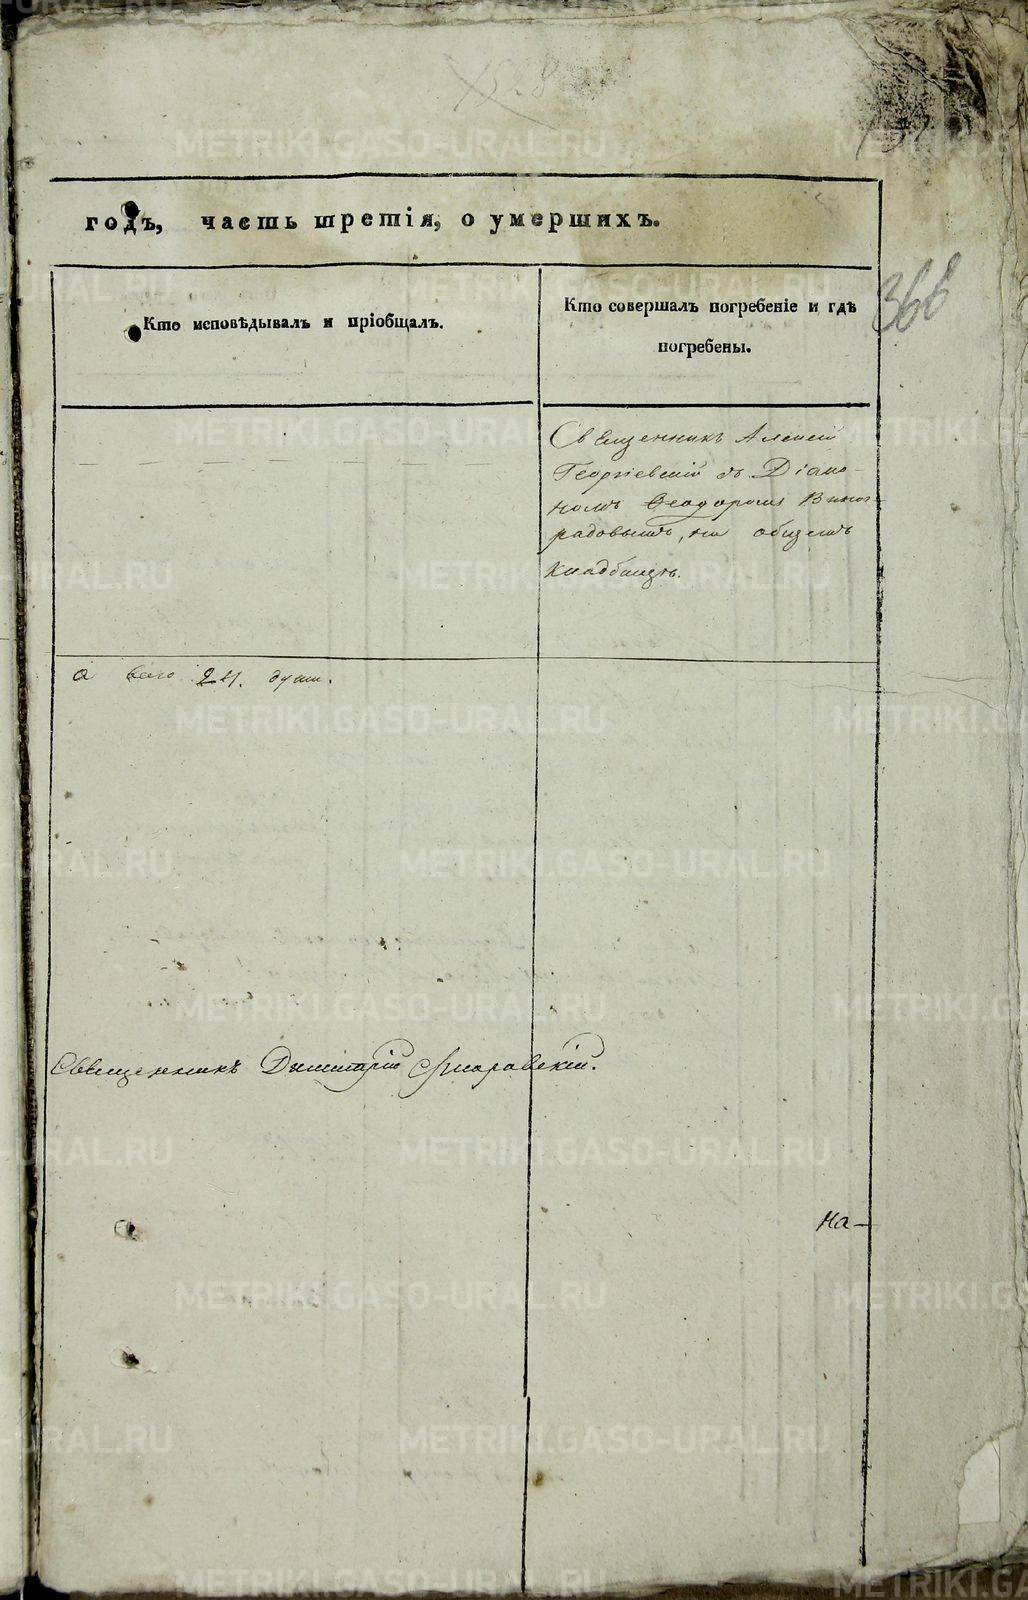 1528
годъ, часть третія, о умершихъ.
366
Кто исповѣдывалъ и пріобщалъ.
Кто совершалъ погребеніе и гдѣ
погребены.
Священникъ Алексѣй
Георгіевскій съ Діако-
номъ Ѳеодоромъ Виног-
радовымъ, на общемъ
кладбищѣ.
а всего 24. душ.
Священникъ Димитрій
На-
METRIKI.GASO-URAL.RU